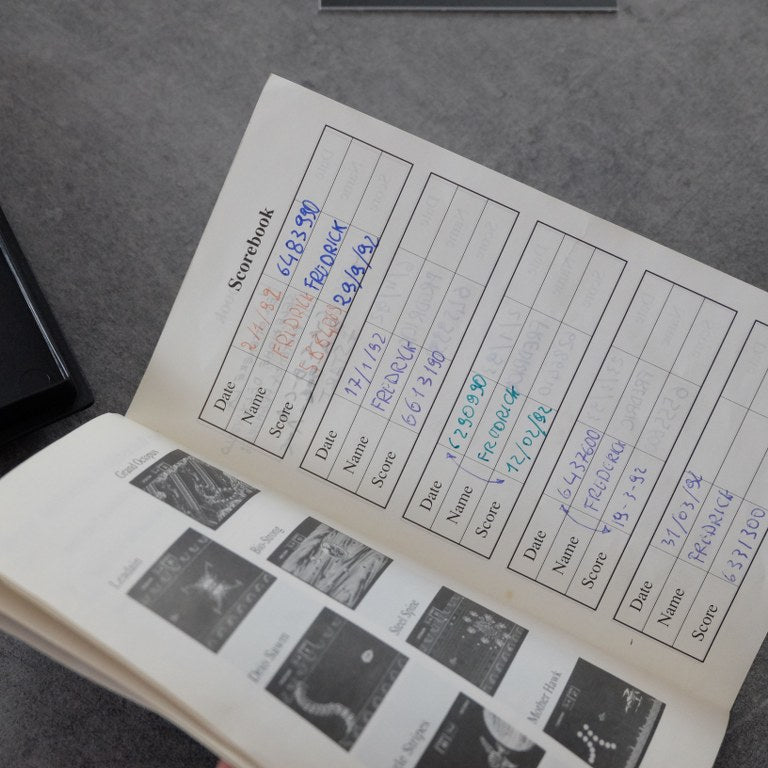 Scorebook
Date 2/1/92 6483990
Name FREDRICK FREDRICK
Score 29/9/92
Date 17/1/92
Name FREDRICK
Score 6613190
Date 6290990
Name FREDRICK
Score 12/02/92
Date 6437600
Name FREDERICK
Score 19-3-92
Date 31/03/92
Name FREDRICK
Score 6331300
Grand Octopus
Leadain
Bio-Strong
Dino Sawm
Steel Spine
Stripes
Mother Hawk